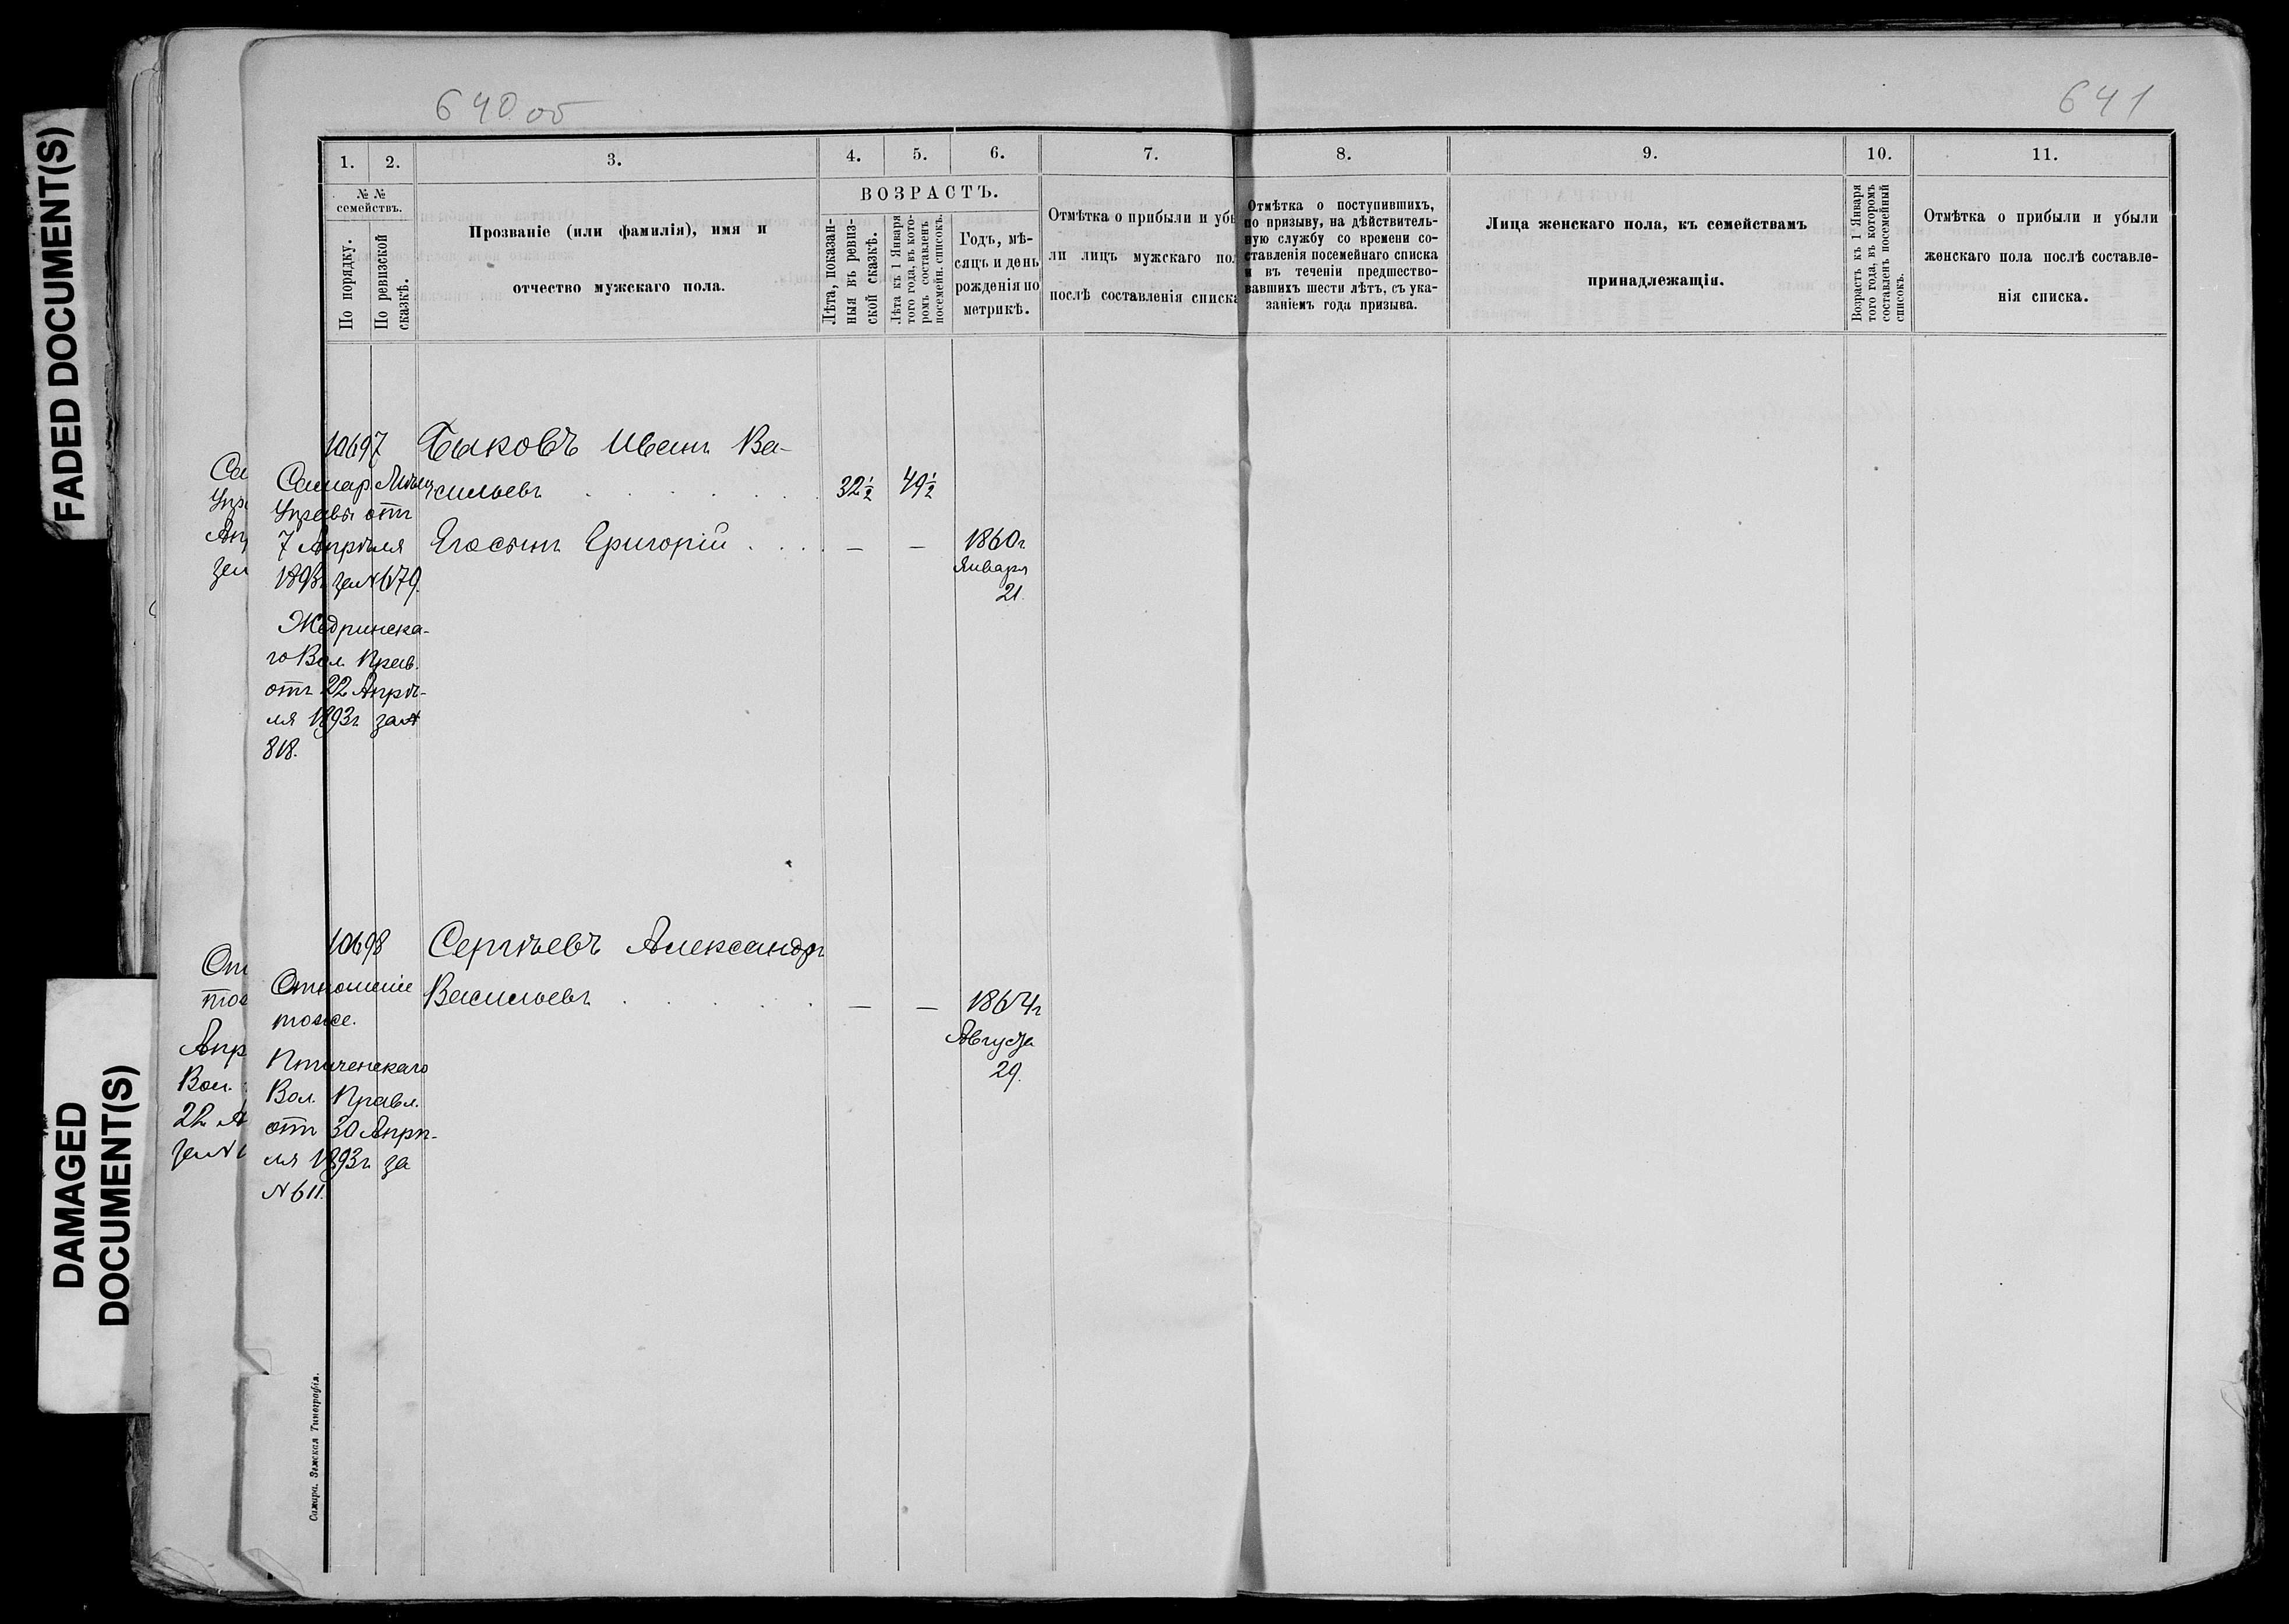 FADED DOCUMENT(S)
DAMAGED
DOCUMENT(S)
640 об
641
1.
2.
3.
4.
5.
6.
7.
8.
9.
10.
11.
№ №
семействъ.
По порядку.
По ревизской
сказкѣ.
Прозваніе (или фамилія), имя и
отчество мужскаго пола.
ВОЗРАСТЪ.
Лѣта, показан-
ныя въ ревиз-
ской сказкѣ.
Лѣта къ 1 Января
того года, въ кото-
ромъ составленъ
посемейн. списокъ.
Годъ, мѣ-
сяцъ и день
рожденія по
метрикѣ.
Отмѣтка о прибыли и убы
ли лицъ мужскаго пол
послѣ составленія списка
Отмѣтка о поступившихъ,
по призыву, на дѣйствитель-
ную службу со времени со-
ставленія посемейнаго списка
и въ теченіи предшество-
вавшихъ шести лѣтъ, съ ука-
заніемъ года призыва.
Лица женскаго пола, къ семействамъ
принадлежащія.
Возрастъ къ 1 Января
того года, въ которомъ
составленъ посемейный
списокъ.
Отмѣтка о прибыли и убыли
женскаго пола послѣ составле-
нія списка.
10697
Быковъ Иванъ Ва-
сильевъ 32½ 49½
Самар. Мѣщ
Управы отъ
7 Апрѣля
1893г за № 679.
Его сынъ Григорій — — 1860г
Января
21.
Жедринска-
го Вол. Прав.
отъ 22 Апрѣ-
ля 1893г за №
818.
10698
Сергѣевъ Александръ
Васильевъ — — 1864г
Августа
29.
Отношеніе
тоже.
Птиченскаго
Вол. Правл.
отъ 30 Апрѣ-
ля 1893г за
№ 611.
Са
Упр
Ап
за
От
тож
Апр
Вол.
22 А
за №
Самара. Земская Типографія.